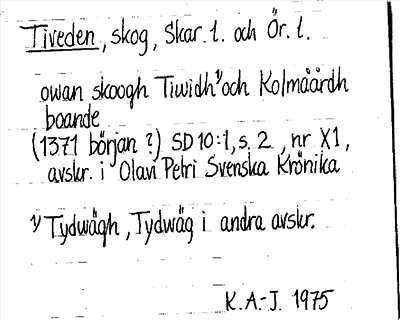 Tiveden, skog, Skar. l. och Ör. l.
owan skoogh Tiwidh¹⁾ och Kolmåårdh
boande
(1371 början ?) SD 10:1, s. 2, nr X1,
avskr. i Olavi Petri Svenska Krönika
¹⁾ Tydwägh, Tydwäg i andra avskr.
K.A.-J. 1975